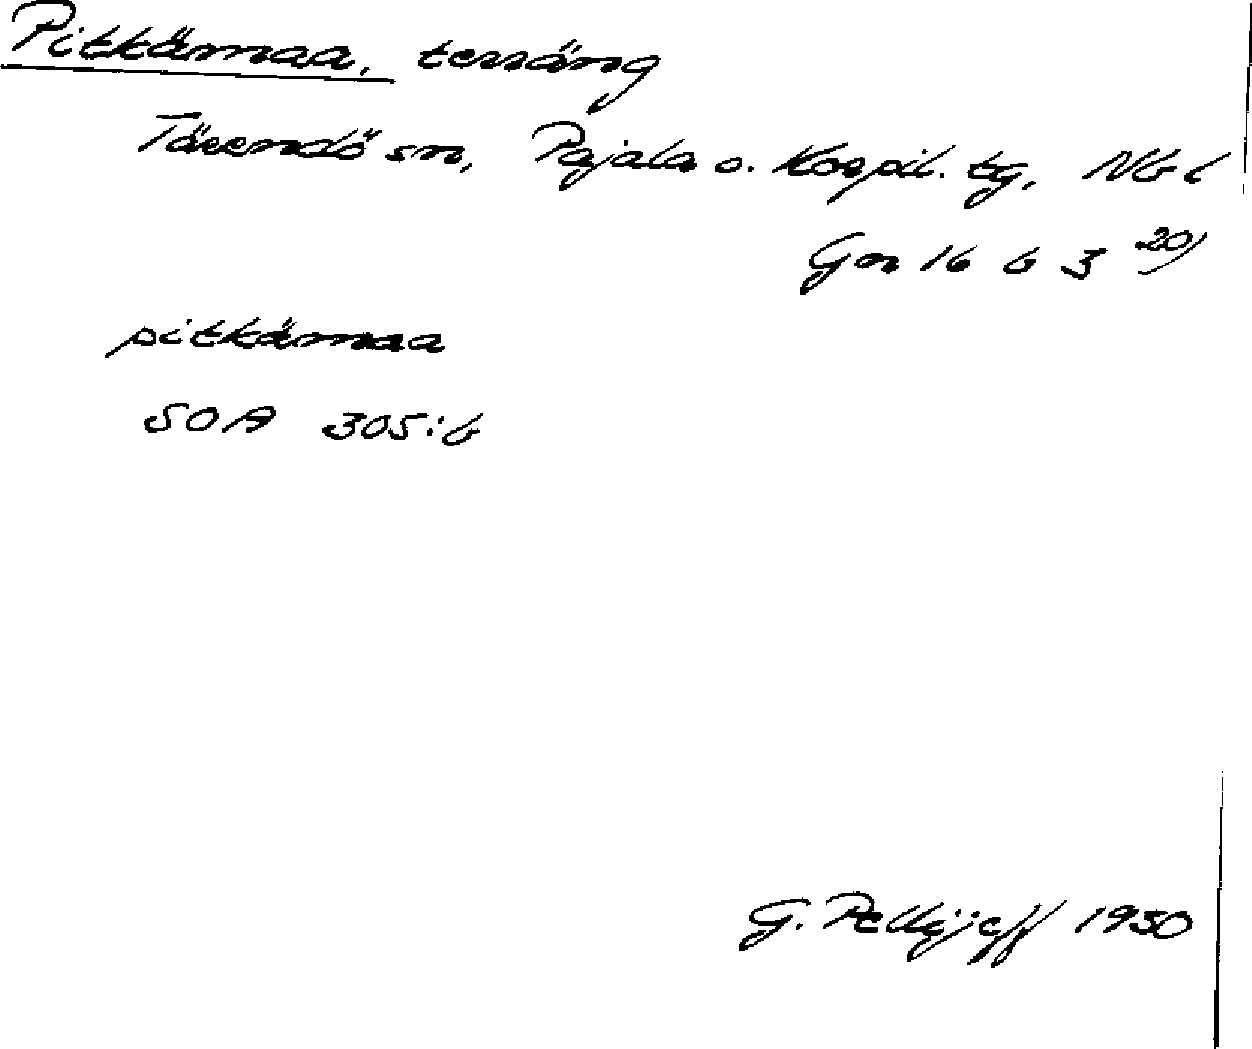 Pitkämaa, terräng
Tärendö sn, Pajala o. Korpil. tg, Nb l
Gn 16 b 3 20)
pitkämaa
SOA 305:6
G. Pellijeff 1950